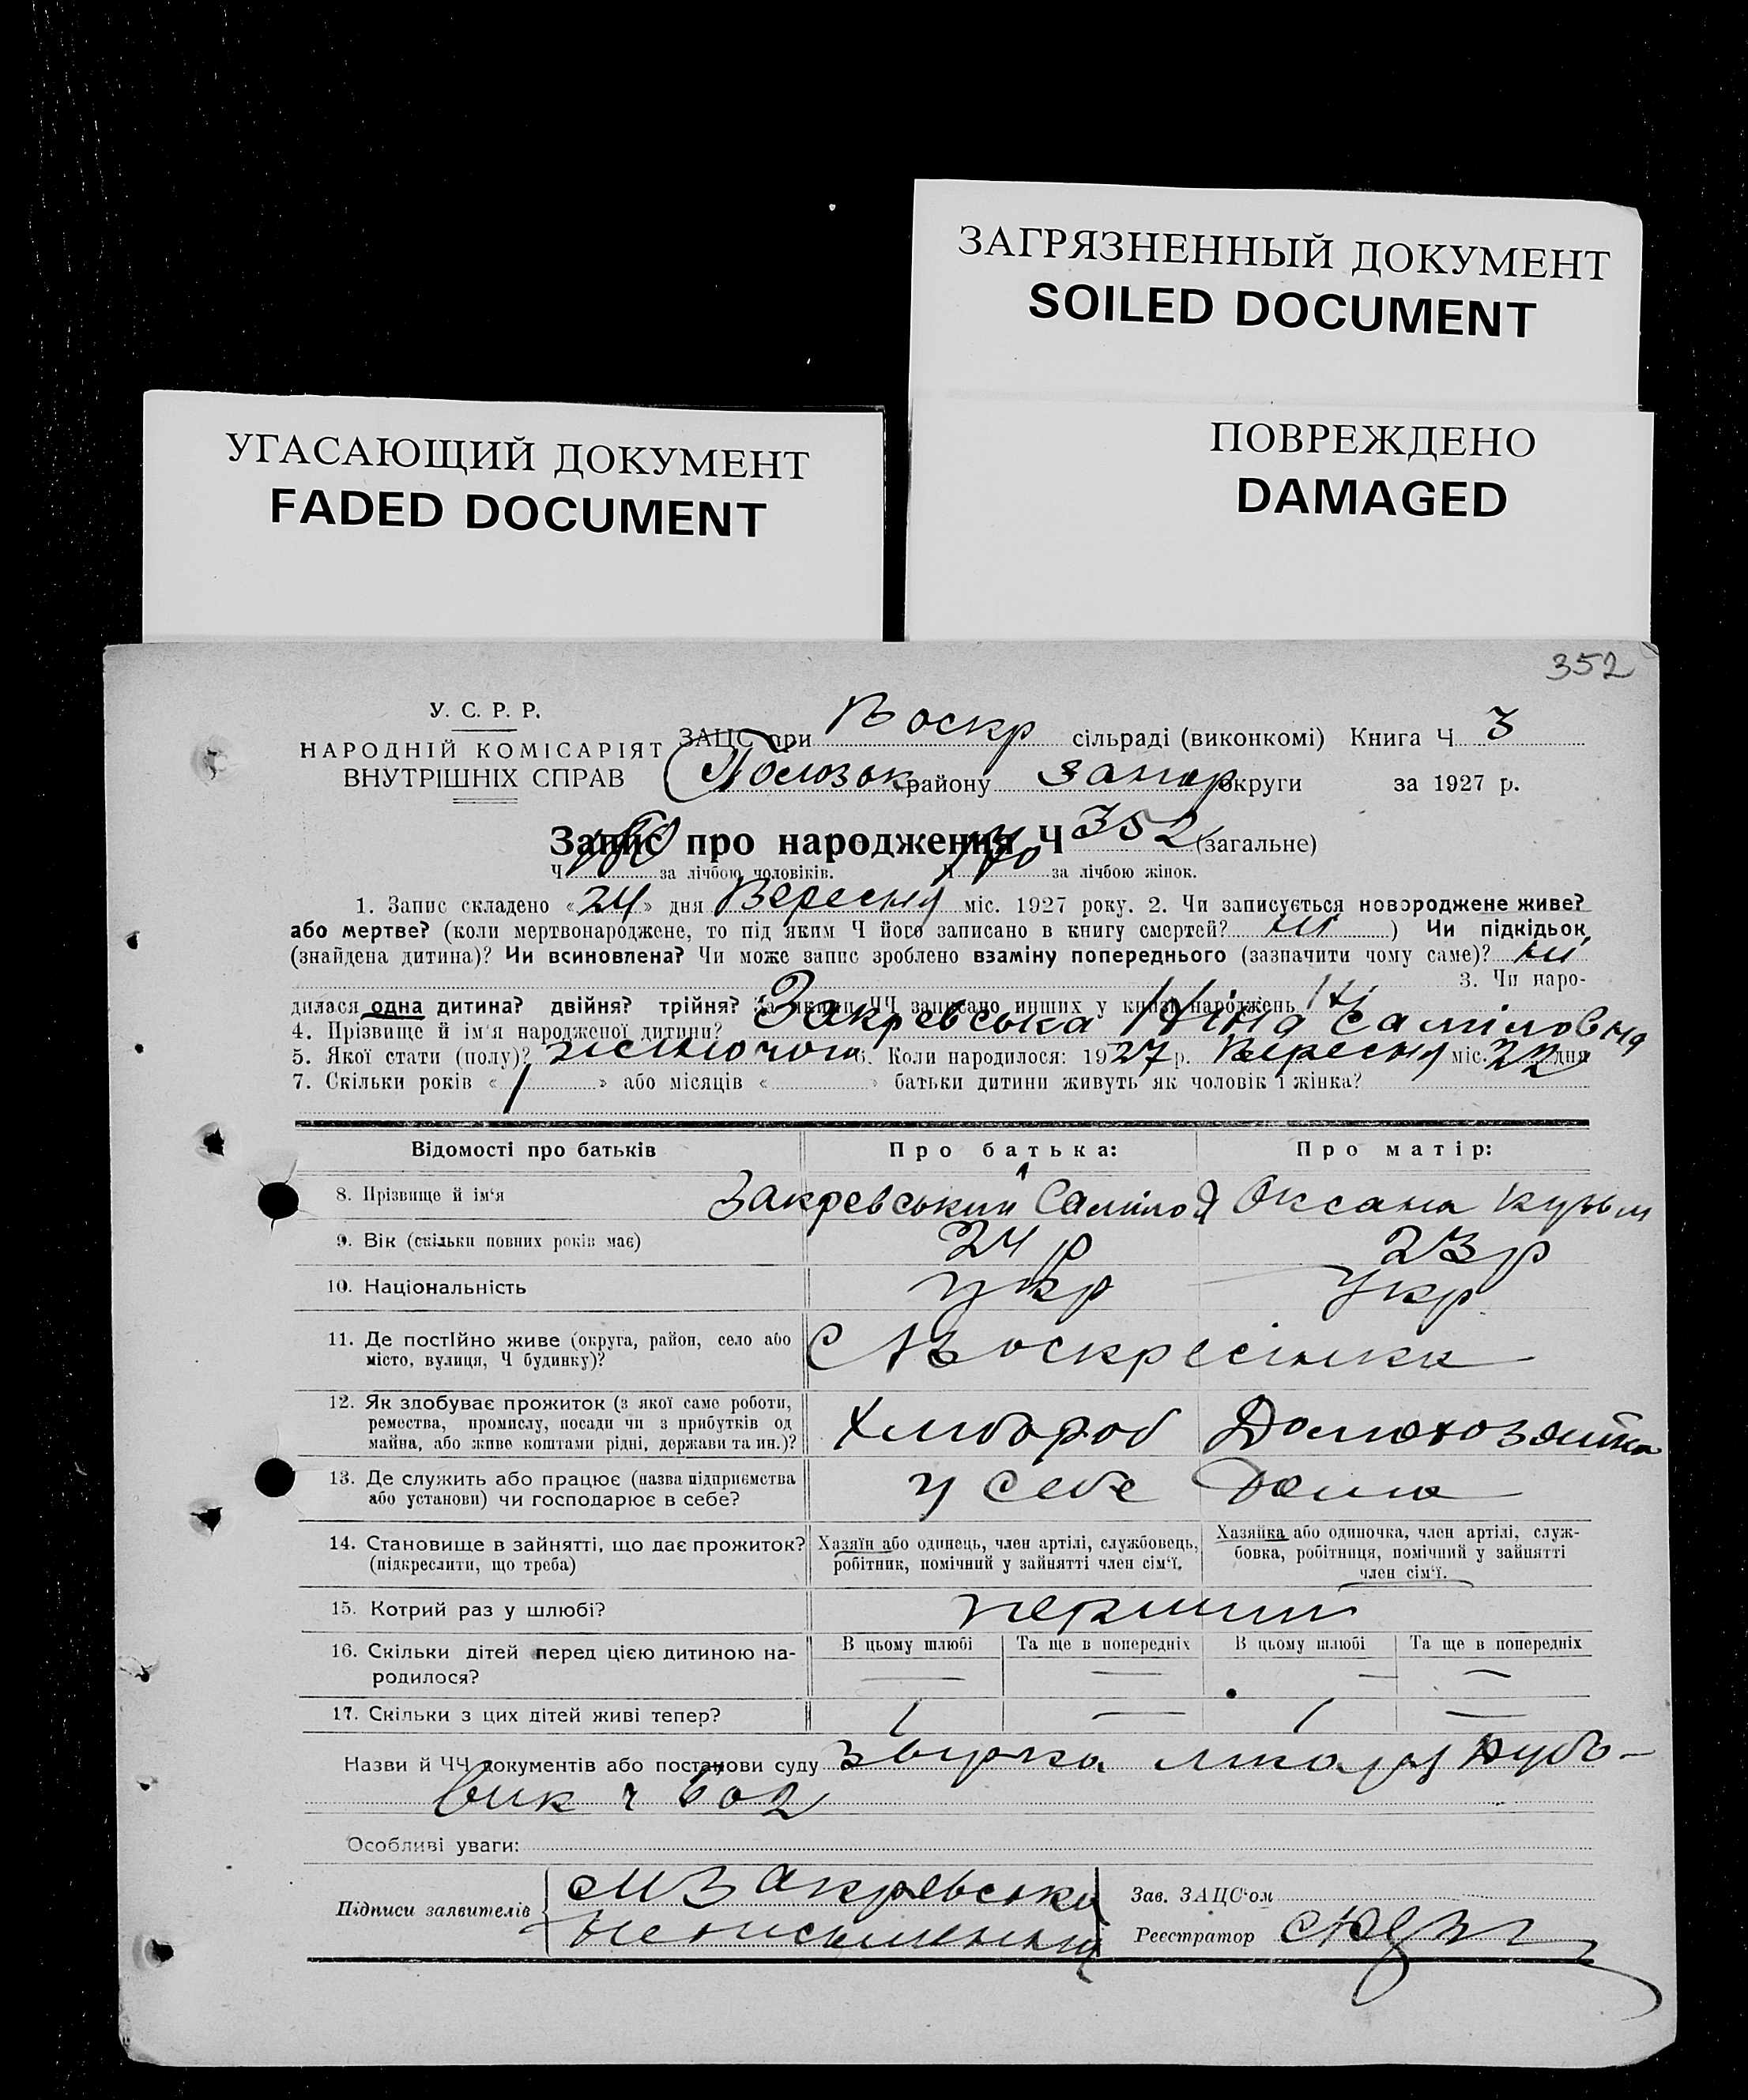 ЗАГРЯЗНЕННЫЙ ДОКУМЕНТ
SOILED DOCUMENT
УГАСАЮЩИЙ ДОКУМЕНТ
FADED DOCUMENT
ПОВРЕЖДЕНО
DAMAGED
352
У. С. Р. Р.
НАРОДНІЙ КОМІСАРІЯТ
ВНУТРІШНІХ СПРАВ
ЗАЦС при Воскр сільраді (виконкомі) Книга Ч 3
Пологок району Запор округи за 1927 р.
Запис про народження Ч 352 (загальне)
Ч за лічбою чоловіків. Ч 170 за лічбою жінок.
1. Запис складено «24» дня Вересня міс. 1927 року. 2. Чи записується новороджене живе?
або мертве? (коли мертвонароджене, то під яким Ч його записано в книгу смертей? ні ) Чи підкідьок
(знайдена дитина)? Чи всиновлена? Чи може запис зроблено взаміну попереднього (зазначити чому саме)? ні
3. Чи наро-
дилася одна дитина? двійня? трійня? За якими ЧЧ записано инших у книзі народжень ні
4. Прізвище й ім'я народженої дитини? Закревська Ніна Саміловна
5. Якої стати (полу)? жіночого 6. Коли народилося: 1927 р. Вересня міс. 22 дня
7. Скільки років « 1 » або місяців « » батьки дитини живуть як чоловік і жінка?
Відомості про батьків Про батька: Про матір:
8. Прізвище й ім'я Закревський Саміло Я Оксана Кузьм
9. Вік (скільки повних років має) 24 р 23 р
10. Національність укр укр
11. Де постійно живе (округа, район, село або
місто, вулиця, Ч будинку)? С Воскресінка
12. Як здобуває прожиток (з якої саме роботи,
ремества, промислу, посади чи з прибутків од
майна, або живе коштами рідні, держави та ин.)? Хлібороб Домохозяйка
13. Де служить або працює (назва підприємства
або установи) чи господарює в себе? у себе Дома
14. Становище в зайнятті, що дає прожиток?
(підкреслити, що треба)
Хазяїн або одинець, член артілі, службовець,
робітник, помічний у зайнятті член сім'ї.
Хазяйка або одиночка, член артілі, служ-
бовка, робітниця, помічний у зайнятті
член сім'ї.
15. Котрий раз у шлюбі? перший
16. Скільки дітей перед цією дитиною на-
родилося?
В цьому шлюбі Та ще в попередніх В цьому шлюбі Та ще в попередніх
— — — —
17. Скільки з цих дітей живі тепер? 1 — 1 —
Назви й ЧЧ документів або постанови суду Звирка лікаря Дубо-
вик ч 602
Особливі уваги:
Підписи заявителів Закревськи
неписьменний
Зав. ЗАЦС'ом
Реєстратор